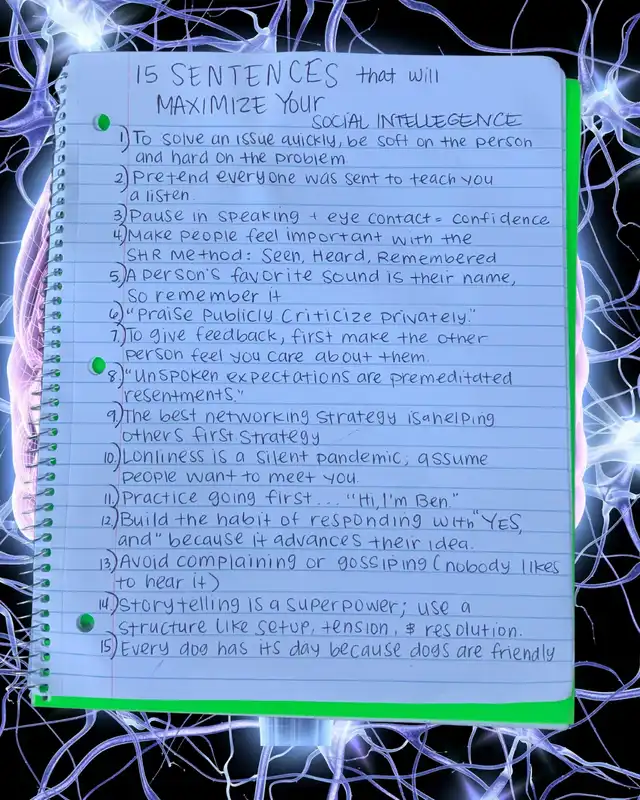 15 SENTENCES that will
MAXIMIZE YOUR
SOCIAL INTELLEGENCE
1) To solve an issue quickly, be soft on the person
and hard on the problem
2) Pretend everyone was sent to teach you
a listen.
3) Pause in speaking + eye contact = confidence
4) Make people feel important with the
SHR Method: Seen, Heard, Remembered
5) A person's favorite sound is their name,
so remember it
6) "Praise Publicly. Criticize privately."
7) To give feedback, first make the other
person feel you care about them.
8) "Unspoken expectations are premeditated
resentments."
9) The best networking strategy is a helping
others first strategy
10) Lonliness is a silent pandemic; assume
people want to meet you.
11) Practice going first... "Hi, I'm Ben."
12) Build the habit of responding with "YES,
and" because it advances their idea.
13) Avoid complaining or gossiping (nobody likes
to hear it)
14) Storytelling is a superpower; use a
structure like setup, tension, & resolution.
15) Every dog has its day because dogs are friendly